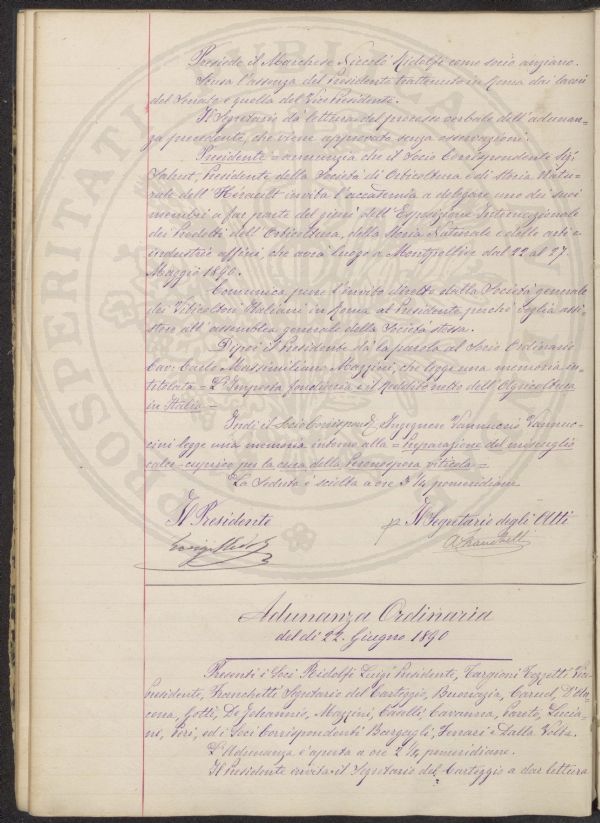 Presiede il Marchese Niccolò Ridolfi come socio anziano.
Scusa l'assenza del Presidente trattenuto in Roma dai lavori
del Senato e quella del Vice Presidente.
Il Segretario dà lettura del processo verbale dell'adunan-
za precedente, che viene approvato senza osservazioni.
Presidente = annunzia che il Socio Corrispondente Sig.
Sahut, Presidente della Società di Orticoltura e di storia natu-
rale dell'Hérault invita l'accademia a delegare uno dei suoi
membri a far parte del giurì dell'Esposizione Internazionale
dei Prodotti dell'Orticoltura, della Storia Naturale e delle arti e
industrie affini, che avrà luogo a Montpellier dal 22 al 27
Maggio 1890.
Comunica pure l'invito diretto dalla Società generale
dei Viticoltori Italiani in Roma al Presidente perché voglia assi-
stere all'assemblea generale della Società stessa.
Dipoi il Presidente dà la parola al Socio Ordinario
Cav: Carlo Massimiliano Mazzini, che legge una memoria in-
titolata = L'Imposta fondiaria e il Reddito netto dell'Agricoltura
in Italia =
Indi il Socio Corrispond. Ingegner Vannuccio Vannuc-
cini legge una memoria intorno alla = Preparazione del miscuglio
calce-cuprico per la cura della Peronospora viticola =
La Seduta è sciolta a ore 3 1/4 pomeridiane
Il Presidente p Il Segretario degli Atti
Luigi Ridolfi A Franchetti
Adunanza Ordinaria
del dì 22. Giugno 1890
Presenti i Soci Ridolfi Luigi Presidente, Targioni Tozzetti Vice
Presidente, Franchetti Segretario del Carteggio, Buonazia, Caruel, D'An-
cona, Gotti, De Johannis, Mazzini, Caselli, Cavanna, Pareto, Lucia-
ni, Peri, ed i Soci Corrispondenti Bargagli, Ferrari e Dalla Volta.
L'Adunanza è aperta a ore 2 1/4 pomeridiane.
Il Presidente invita il Segretario del Carteggio a dar lettura
PROSPERITATI